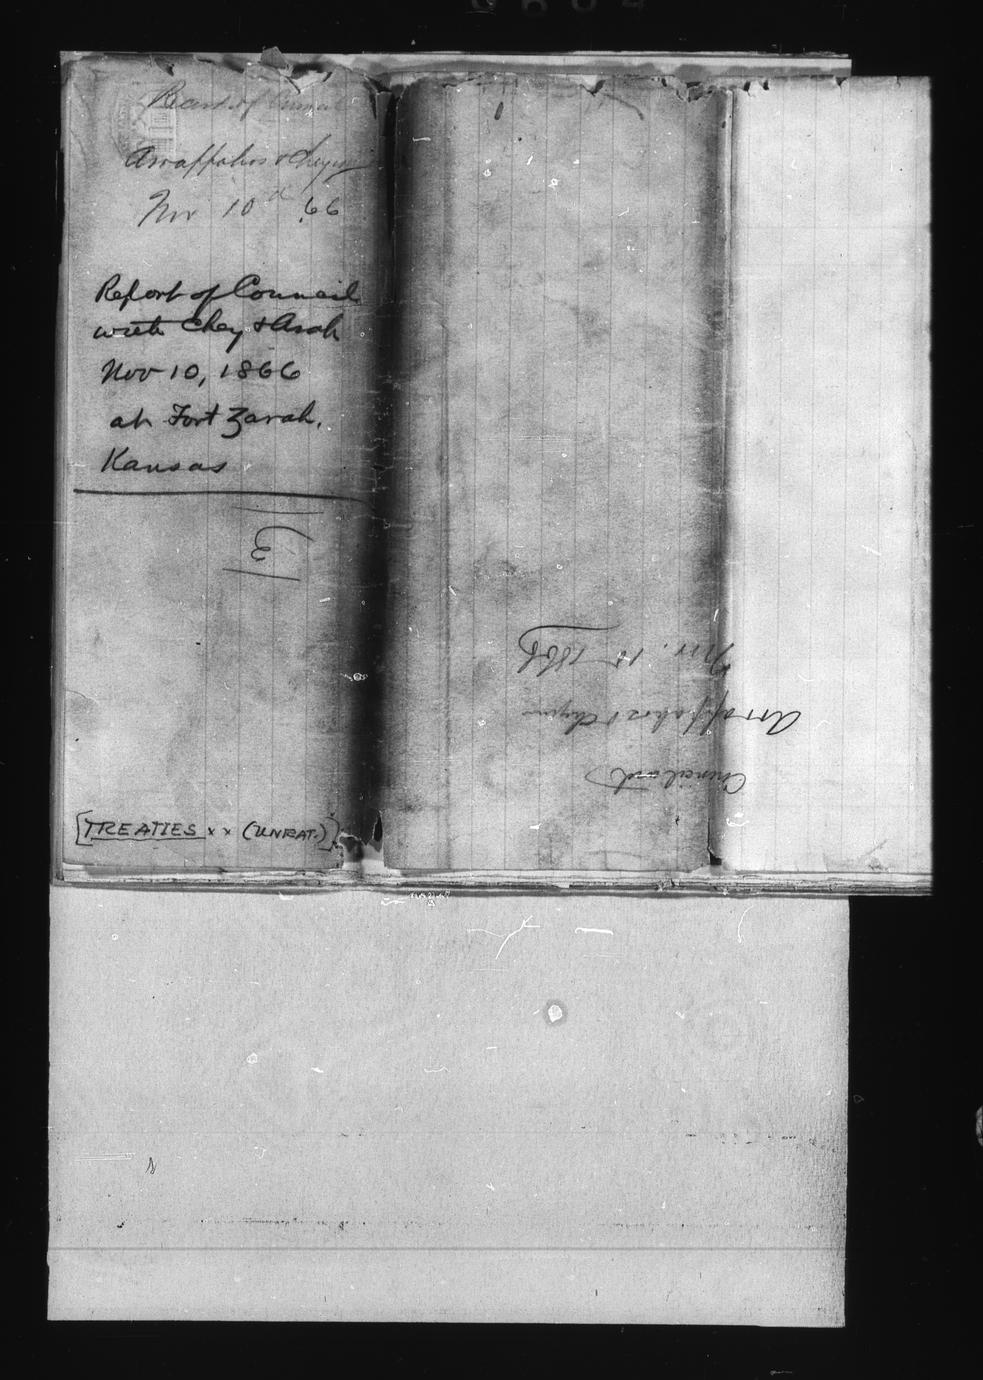 Record of Council
Arrappahos & Cheyenn
Nov 10th 66
Report of Council
with Chey & Arah
Nov 10, 1866
at Fort Zarah,
Kansas
[TREATIES x x (UNRAT.)]
Council
Arrappahos & Cheyenn
Nov. 10 1866